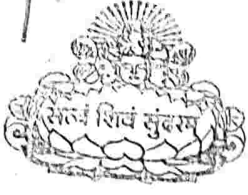 सत्यं शिवं सुंदरम्